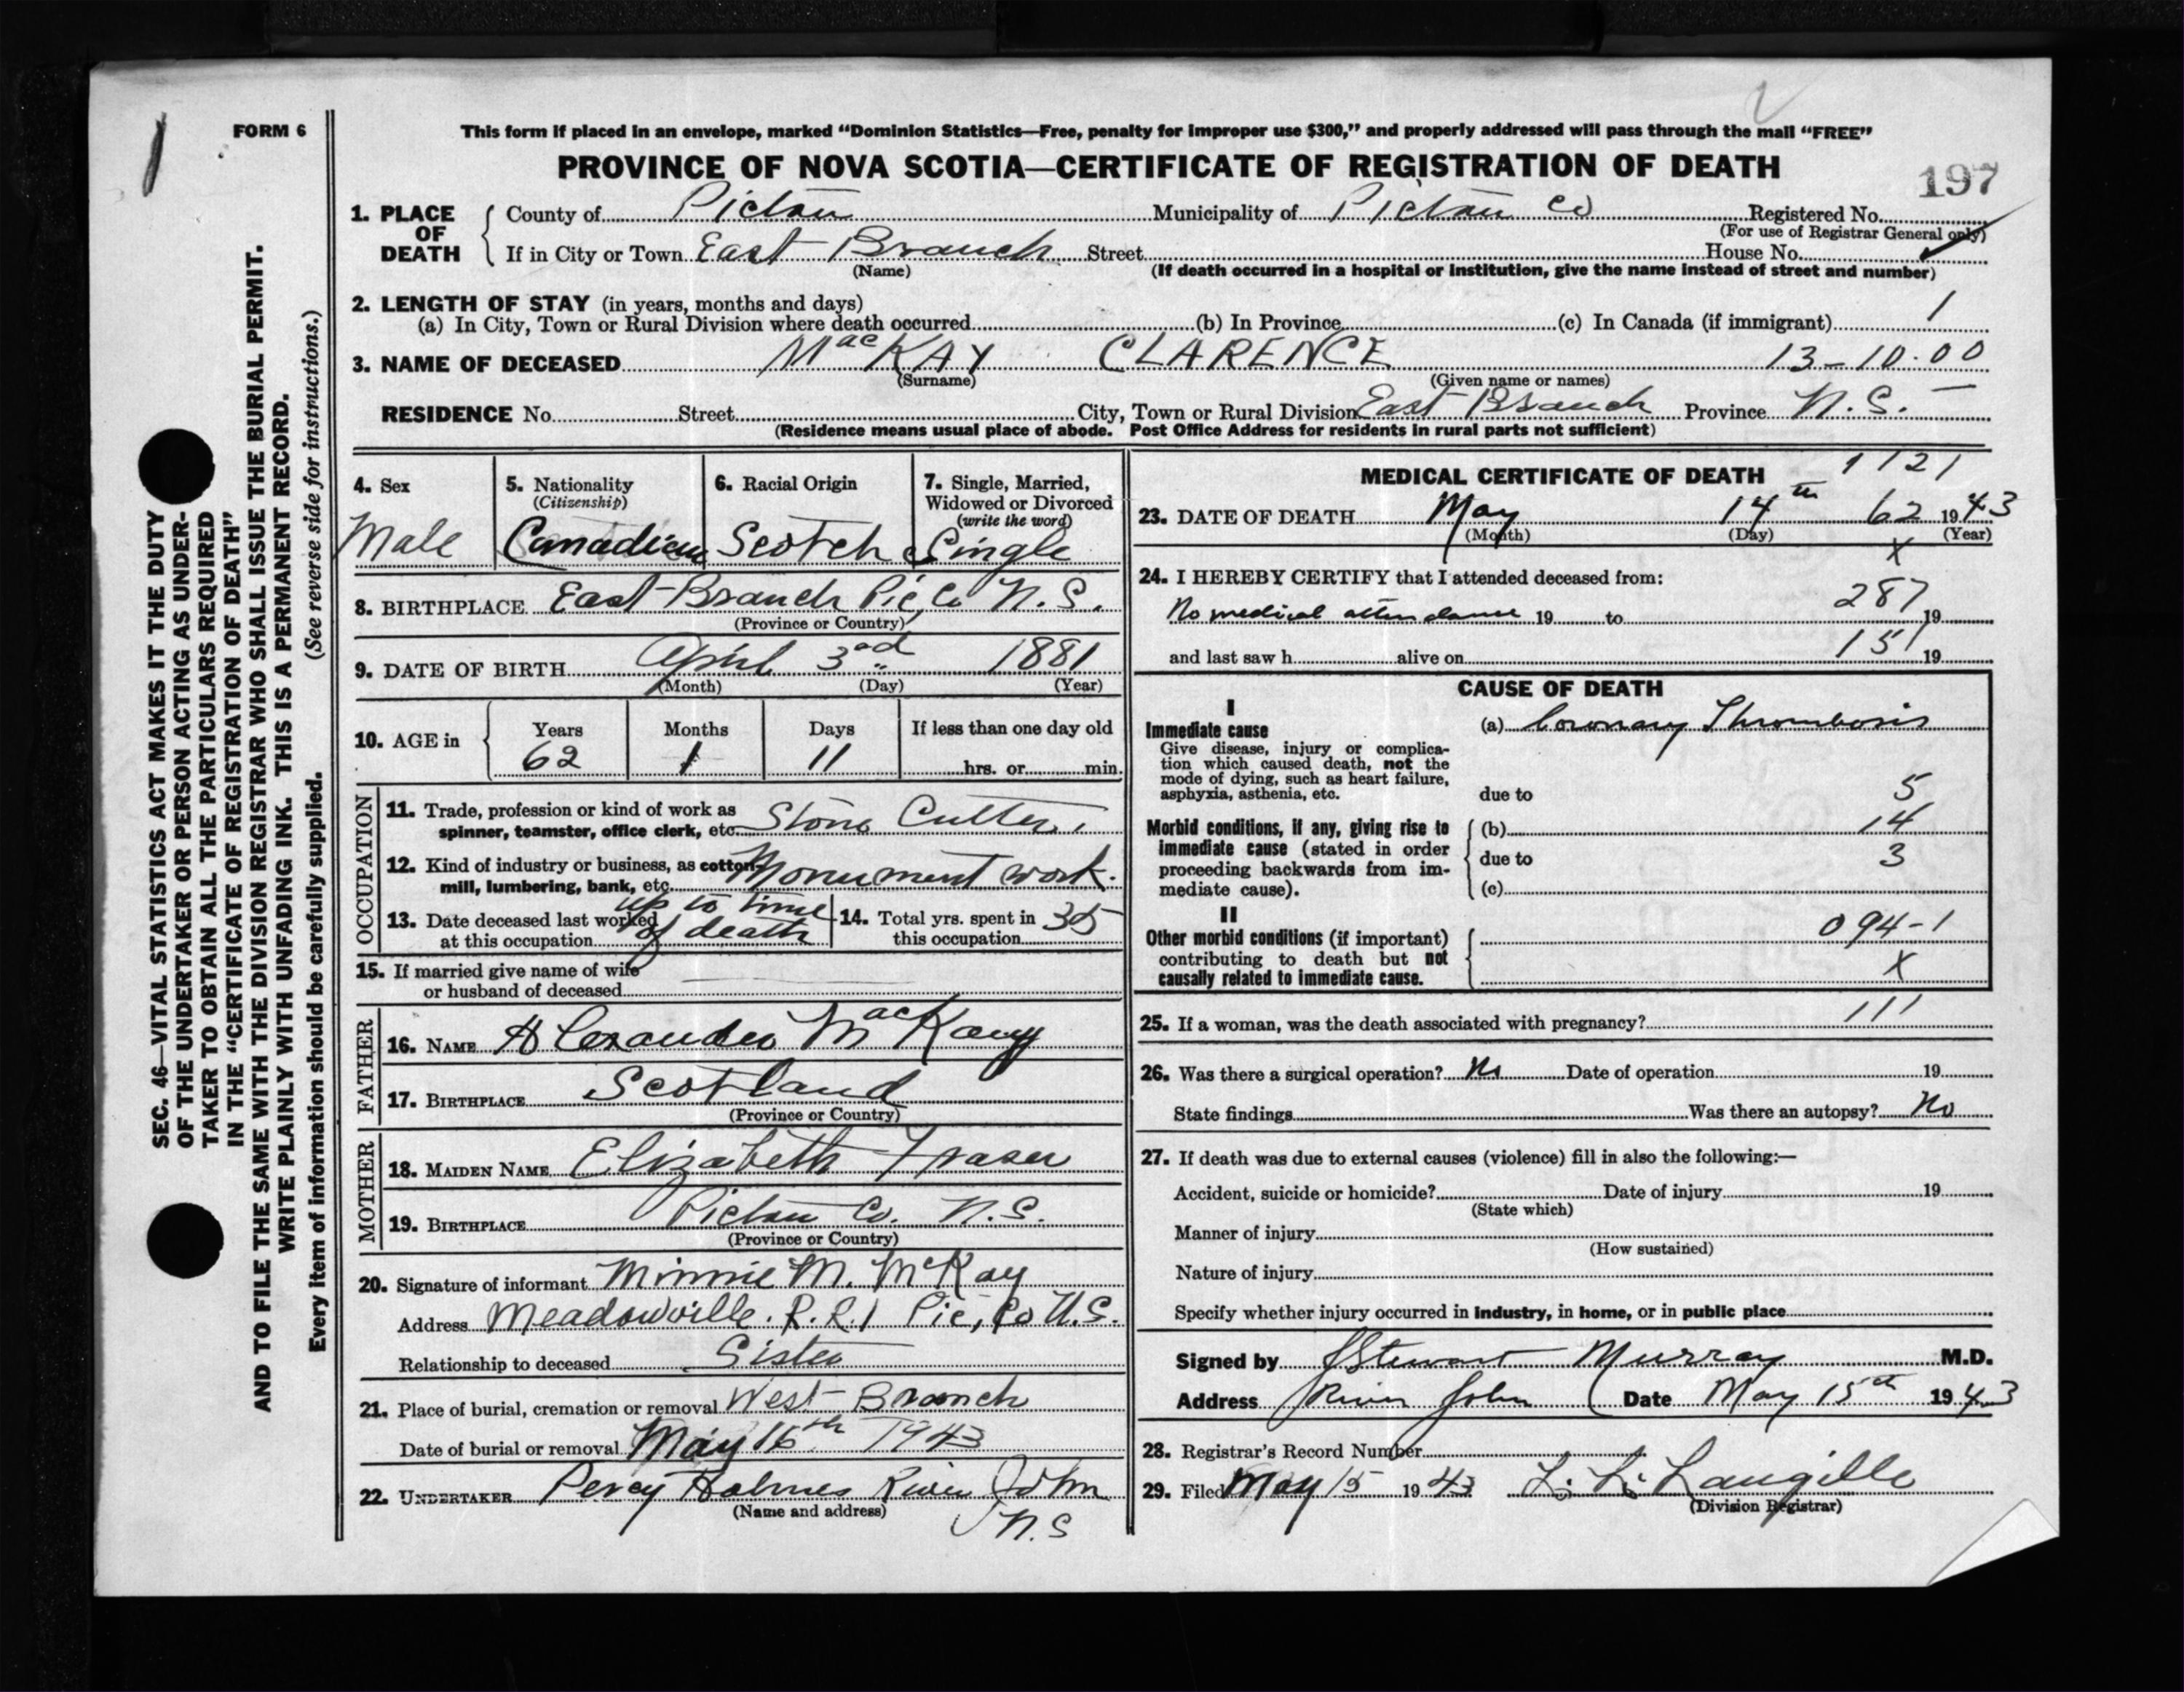 FORM 6
This form if placed in an envelope, marked “Dominion Statistics—Free, penalty for improper use $300,” and properly addressed will pass through the mail “FREE”
PROVINCE OF NOVA SCOTIA—CERTIFICATE OF REGISTRATION OF DEATH
197
1. PLACE OF DEATH
County of Pictou Municipality of Pictou Co Registered No.
(For use of Registrar General only)
If in City or Town East Branch Street House No.
(Name) (If death occurred in a hospital or institution, give the name instead of street and number)
2. LENGTH OF STAY (in years, months and days)
(a) In City, Town or Rural Division where death occurred (b) In Province (c) In Canada (if immigrant) 1
3. NAME OF DECEASED MacKAY CLARENCE 13-10.00
(Surname) (Given name or names)
RESIDENCE No. Street City, Town or Rural Division East Branch Province N.S.
(Residence means usual place of abode. Post Office Address for residents in rural parts not sufficient)
4. Sex
Male
5. Nationality
(Citizenship)
Canadian
6. Racial Origin
Scotch
7. Single, Married,
Widowed or Divorced
(write the word)
Single
8. BIRTHPLACE East Branch Pic, Co N.S.
(Province or Country)
9. DATE OF BIRTH April 3rd 1881
(Month) (Day) (Year)
10. AGE in
Years Months Days If less than one day old
62 1 11 hrs. or min.
OCCUPATION
11. Trade, profession or kind of work as
spinner, teamster, office clerk, etc. Stone Cutter
12. Kind of industry or business, as cotton
mill, lumbering, bank, etc. Monument work.
13. Date deceased last worked up to time
at this occupation of death
14. Total yrs. spent in
this occupation 35
15. If married give name of wife
or husband of deceased
FATHER
16. NAME Alexander MacKay
17. BIRTHPLACE Scotland
(Province or Country)
MOTHER
18. MAIDEN NAME Elizabeth Fraser
19. BIRTHPLACE Pictou Co. N.S.
(Province or Country)
20. Signature of informant Minnie M. McKay
Address Meadowville. R.R.1 Pic, Co N.S.
Relationship to deceased Sister
21. Place of burial, cremation or removal West Branch
Date of burial or removal May 16th 1943
22. UNDERTAKER Percy Holmes River John
(Name and address) N.S
MEDICAL CERTIFICATE OF DEATH 1121
23. DATE OF DEATH May 14th 62 1943
(Month) (Day) (Year)
X
24. I HEREBY CERTIFY that I attended deceased from:
No medical attendance 19 to 287 19
and last saw h alive on 151 19
CAUSE OF DEATH
I
Immediate cause
Give disease, injury or complica-
tion which caused death, not the
mode of dying, such as heart failure,
asphyxia, asthenia, etc.
(a) Coronary Thrombosis
due to 5
Morbid conditions, if any, giving rise to
immediate cause (stated in order
proceeding backwards from im-
mediate cause).
(b) 14
due to 3
(c)
II
Other morbid conditions (if important)
contributing to death but not
causally related to immediate cause.
094-1
X
25. If a woman, was the death associated with pregnancy? 111
26. Was there a surgical operation? No Date of operation 19
State findings Was there an autopsy? No
27. If death was due to external causes (violence) fill in also the following:—
Accident, suicide or homicide? Date of injury 19
(State which)
Manner of injury
(How sustained)
Nature of injury
Specify whether injury occurred in industry, in home, or in public place
Signed by J Stewart Murray M.D.
Address River John Date May 15th 1943
28. Registrar's Record Number
29. Filed May 15 1943 L. L. Langille
(Division Registrar)
SEC. 46—VITAL STATISTICS ACT MAKES IT THE DUTY
OF THE UNDERTAKER OR PERSON ACTING AS UNDER-
TAKER TO OBTAIN ALL THE PARTICULARS REQUIRED
IN THE “CERTIFICATE OF REGISTRATION OF DEATH”
AND TO FILE THE SAME WITH THE DIVISION REGISTRAR WHO SHALL ISSUE THE BURIAL PERMIT.
WRITE PLAINLY WITH UNFADING INK. THIS IS A PERMANENT RECORD.
Every item of information should be carefully supplied. (See reverse side for instructions.)